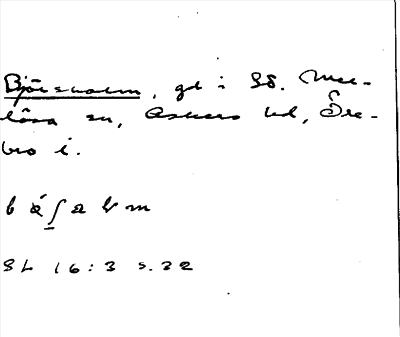 Björsholm, gd i Sö. Mel-
lösa sn, Askers hd, Öre-
bro l.
b
SL 16:3 s.32